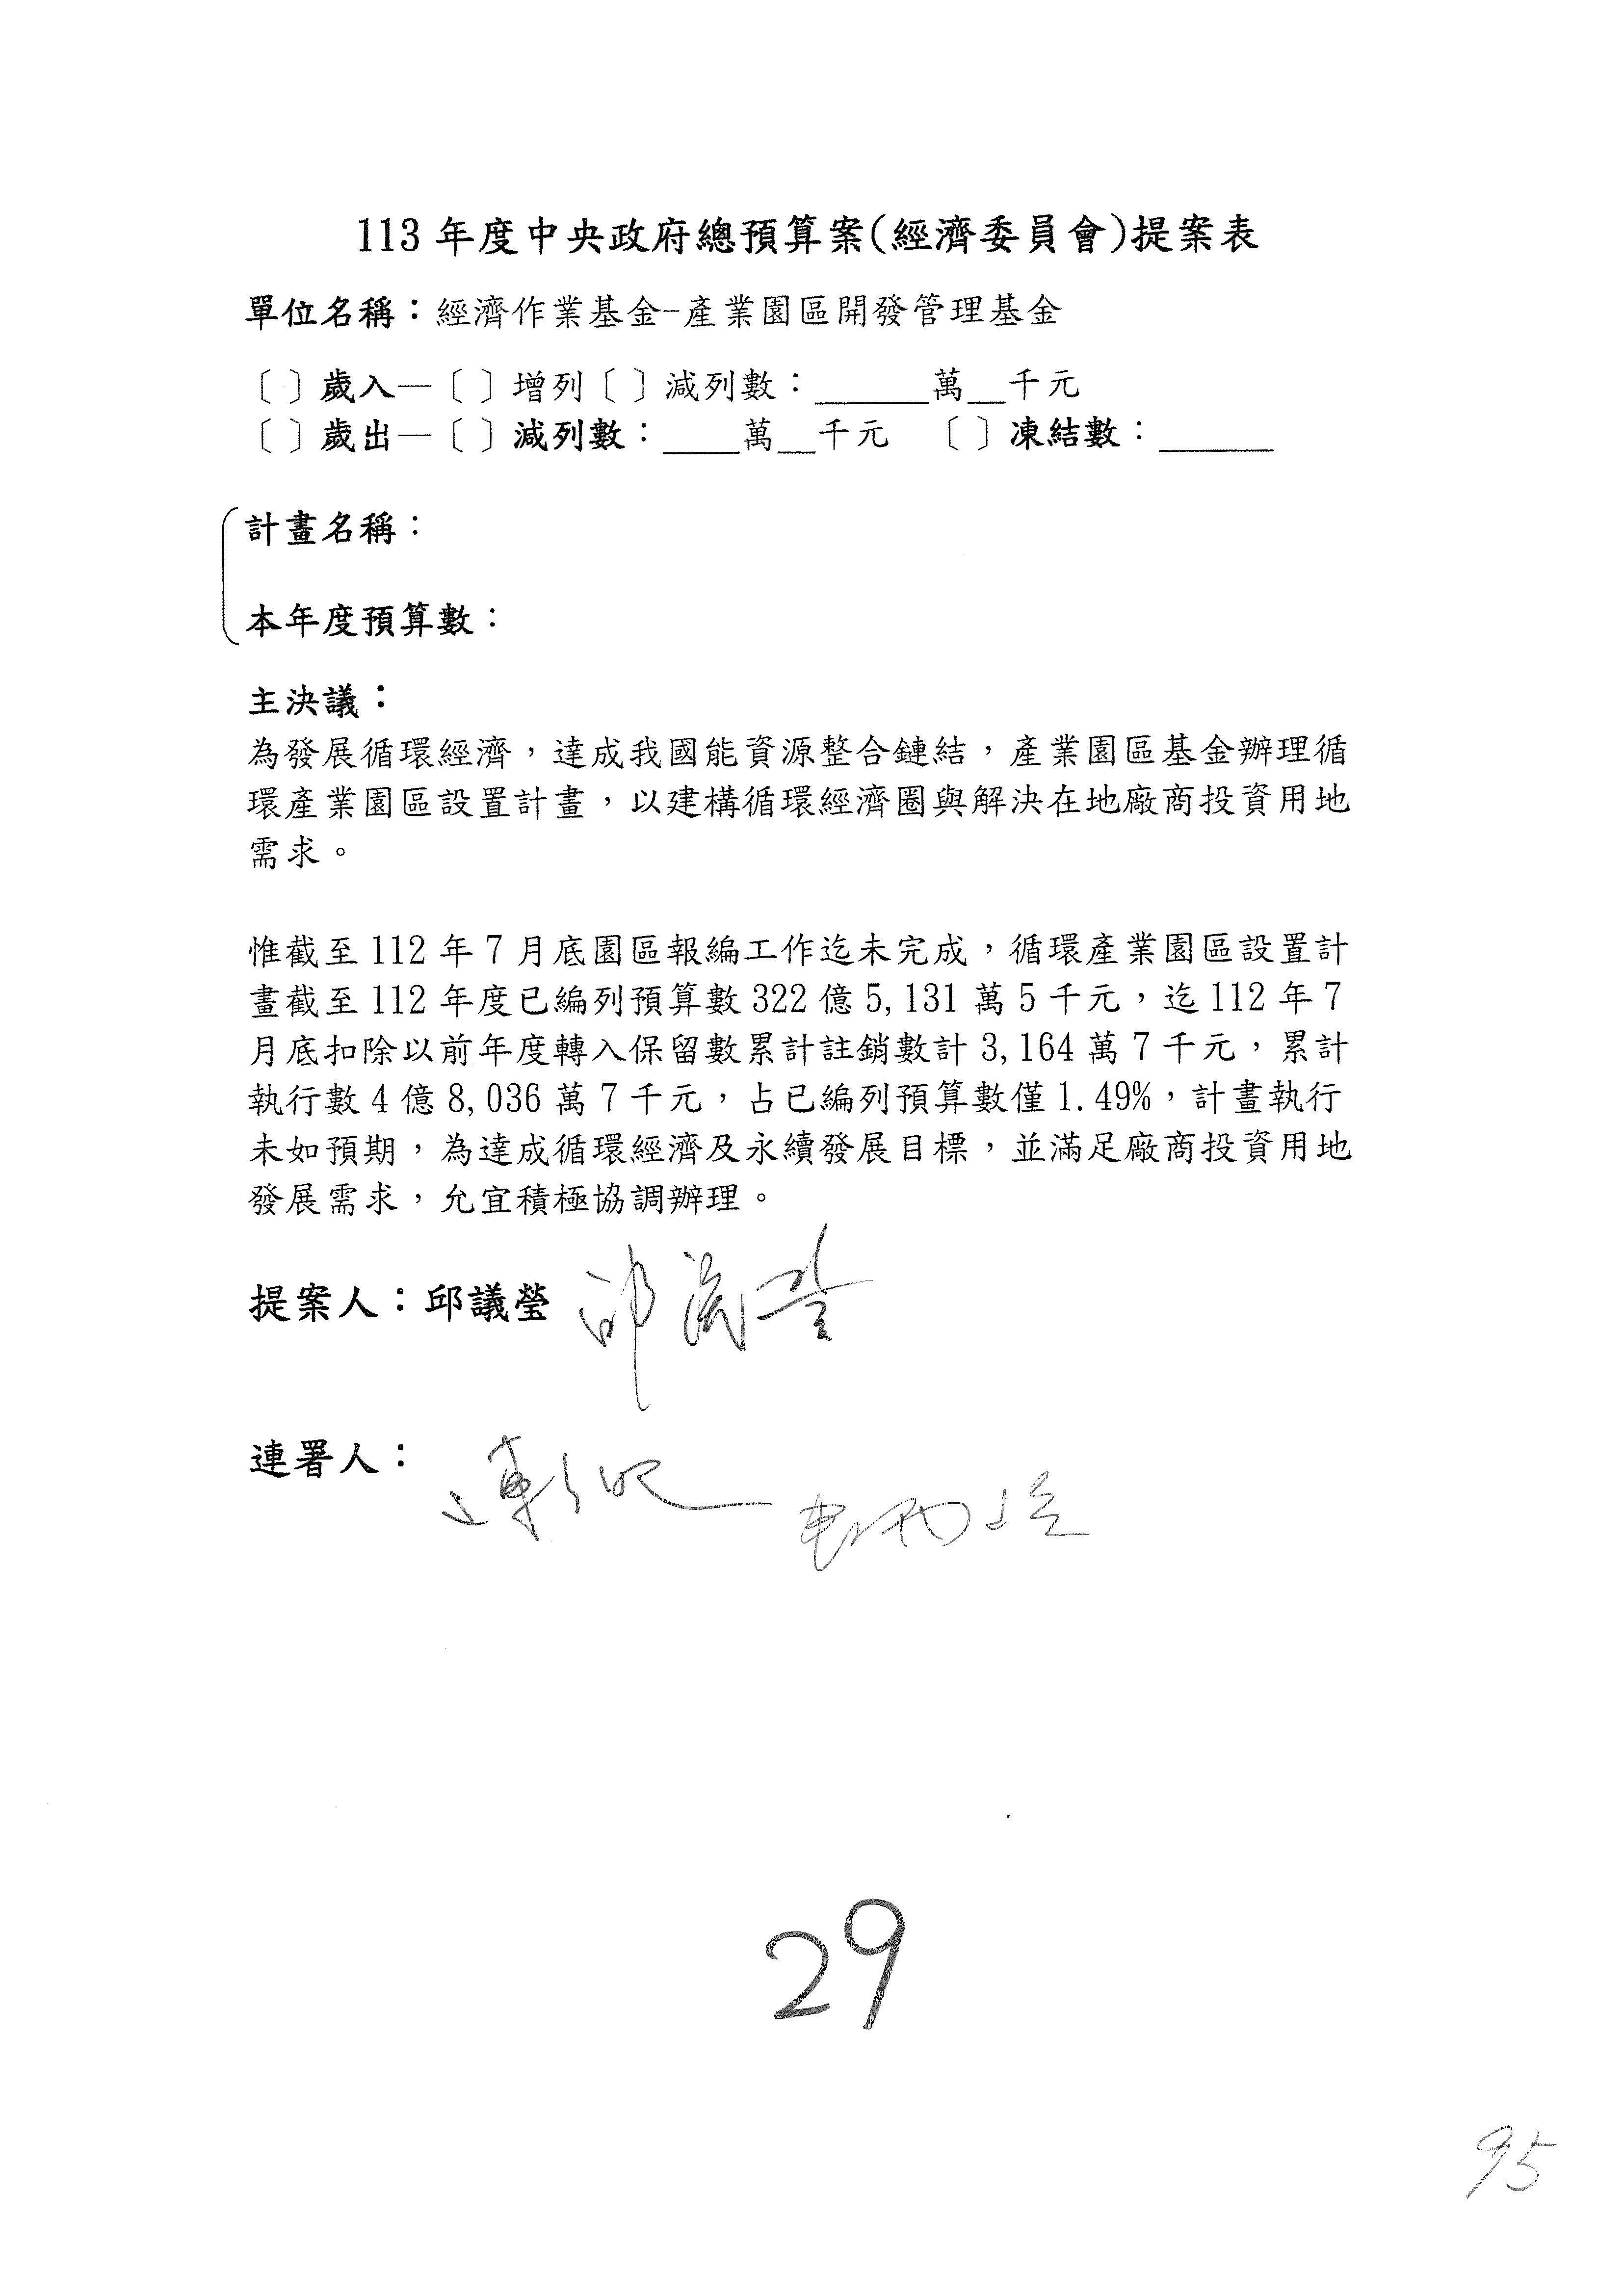 113 年度中央政府總預算案(經濟委員會)提案表
單位名稱：經濟作業基金-產業園區開發管理基金
〔 〕歲入—〔 〕增列〔 〕減列數：______萬__千元
〔 〕歲出—〔 〕減列數：____萬__千元 〔 〕凍結數：______
計畫名稱：
本年度預算數：
主決議：
為發展循環經濟，達成我國能資源整合鏈結，產業園區基金辦理循
環產業園區設置計畫，以建構循環經濟圈與解決在地廠商投資用地
需求。
惟截至 112 年 7 月底園區報編工作迄未完成，循環產業園區設置計
畫截至 112 年度已編列預算數 322 億 5,131 萬 5 千元，迄 112 年 7
月底扣除以前年度轉入保留數累計註銷數計 3,164 萬 7 千元，累計
執行數 4 億 8,036 萬 7 千元，占已編列預算數僅 1.49%，計畫執行
未如預期，為達成循環經濟及永續發展目標，並滿足廠商投資用地
發展需求，允宜積極協調辦理。
提案人：邱議瑩 邱議瑩
連署人：
29
95